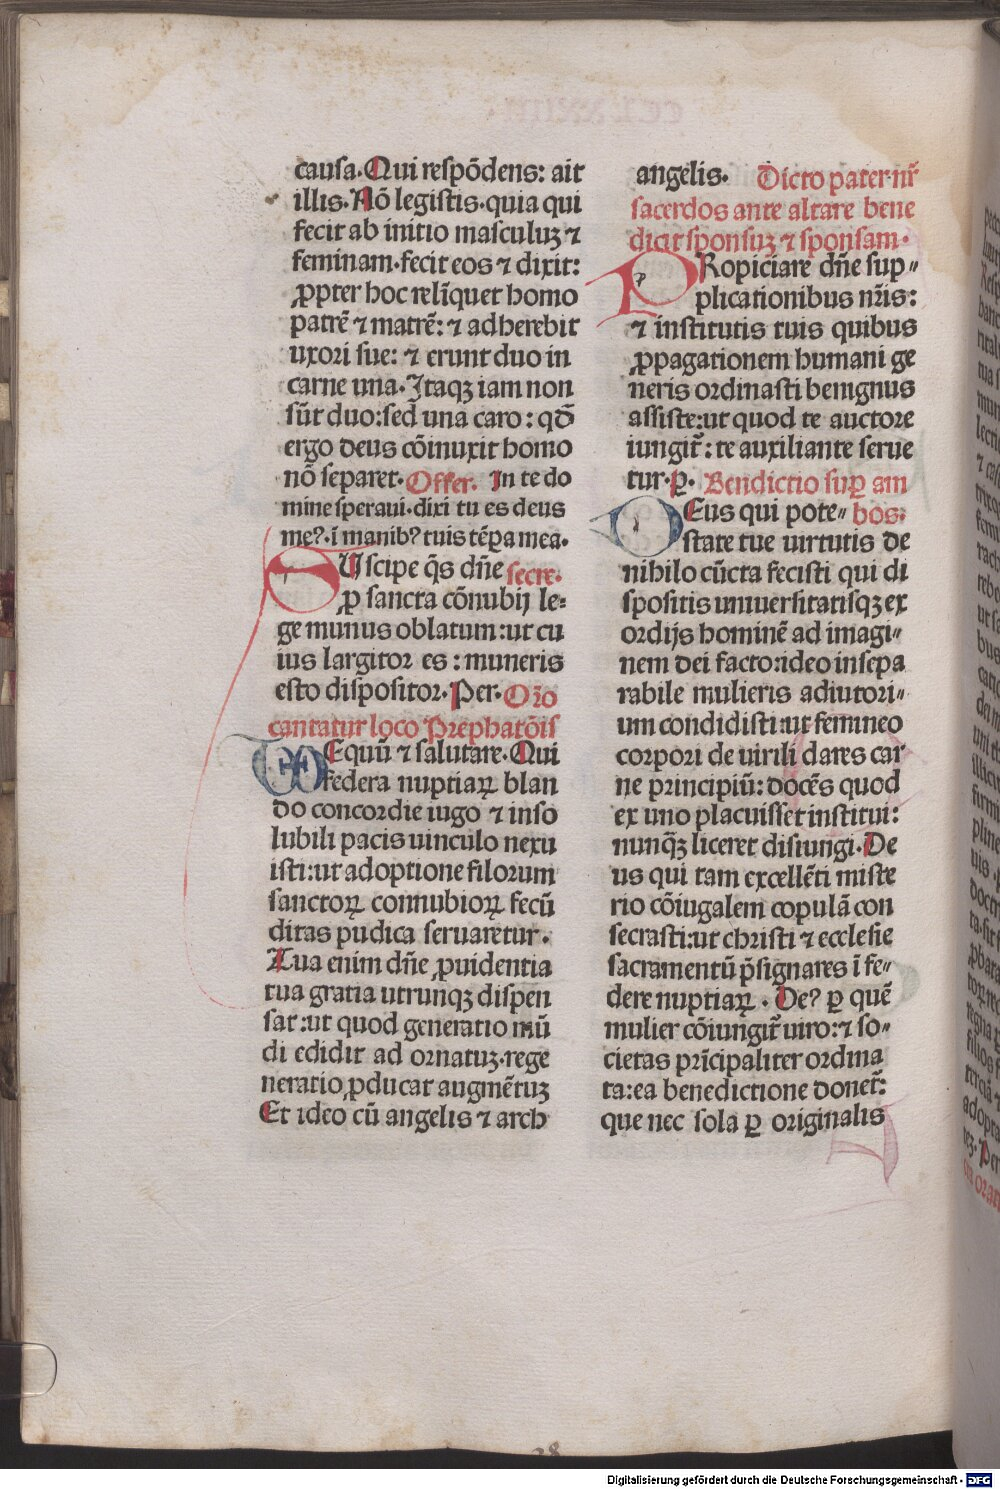 causa. Qui respōdens: ait
illis. Nō legistis. quia qui
fecit ab initio masculuꝫ ⁊
feminam. fecit eos ⁊ dixit:
ꝓpter hoc relīquet homo
patrē ⁊ matrē: ⁊ adherebit
uxori sue: ⁊ erunt duo in
carne una. Itaqꝫ iam non
sūt duo: sed una caro: qđ
ergo deus cōiunxit homo
nō separet. Offer. In te do
mine speraui. dixi tu es deus
meꝰ. ī manibꝰ tuis tēꝑa mea.
SUscipe q̄s dn̄e secre.
ꝓ sancta cōnubij le⸗
ge munus oblatum: ut cu
ius largitor es: muneris
esto dispositor. Per. Or̄o
cantatur loco Prephatōis
TEEquū ⁊ salutare. Qui
federa nuptiaꝝ blan
do concordie iugo ⁊ inso
lubili pacis uinculo nexu
isti: ut adoptione filorum
sanctoꝝ connubioꝝ fecū
ditas pudica seruaretur.
Tua enim dn̄e ꝓuidentia
tua gratia utrunqꝫ dispen
sat: ut quod generatio mū
di edidit ad ornatuꝫ. rege
neratio ꝓducat augmētuꝫ
Et ideo cū angelis ⁊ arch
angelis. Dicto pater nr̄
sacerdos ante altare bene
dicit sponsuꝫ ⁊ sponsam.
PRopiciare dn̄e sup⸗
plicationibus nr̄is:
⁊ institutis tuis quibus
ꝓpagationem humani ge
neris ordinasti benignus
assiste: ut quod te auctore
iungit᷑: te auxiliante serue
tur. ꝑ. Bendictio suꝑ am
DEus qui pote⸗ bos.
state tue uirtutis de
nihilo cūcta fecisti qui di
spositis uniuersitatisqꝫ ex
ordijs hominē ad imagi⸗
nem dei facto: ideo insepa
rabile mulieris adiutori⸗
um condidisti: ut femineo
corpori de uirili dares car
ne principiū: docēs quod
ex uno placuisset institui:
nunq̄ꝫ liceret disiungi. De
us qui tam excellēti miste
rio cōiugalem copulā con
secrasti: ut christi ⁊ ecclesie
sacramentū p̄signares ī fe⸗
dere nuptiaꝝ. Deꝰ ꝑ quē
mulier cōiungit᷑ uiro: ⁊ so⸗
cietas prīcipaliter ordina
ta: ea benedictione donet᷑:
que nec sola ꝑ originalis
Digitalisierung gefördert durch die Deutsche Forschungsgemeinschaft - DFG